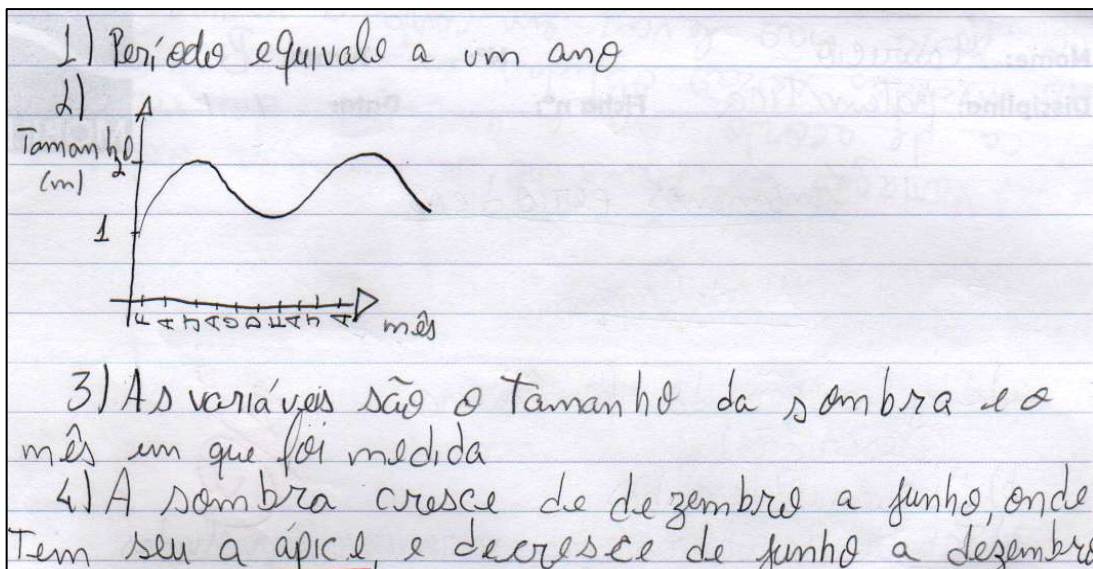 1) Período equivale a um ano
2)
Tamanho
(m)
2
1
F A J A O D F A J A
mês
3) As variáveis são o tamanho da sombra e o
mês em que foi medida
4) A sombra cresce de dezembro a junho, onde
tem seu a ápice, e decresce de junho a dezembro
Nome:
Disciplina: Ficha nº: Data: